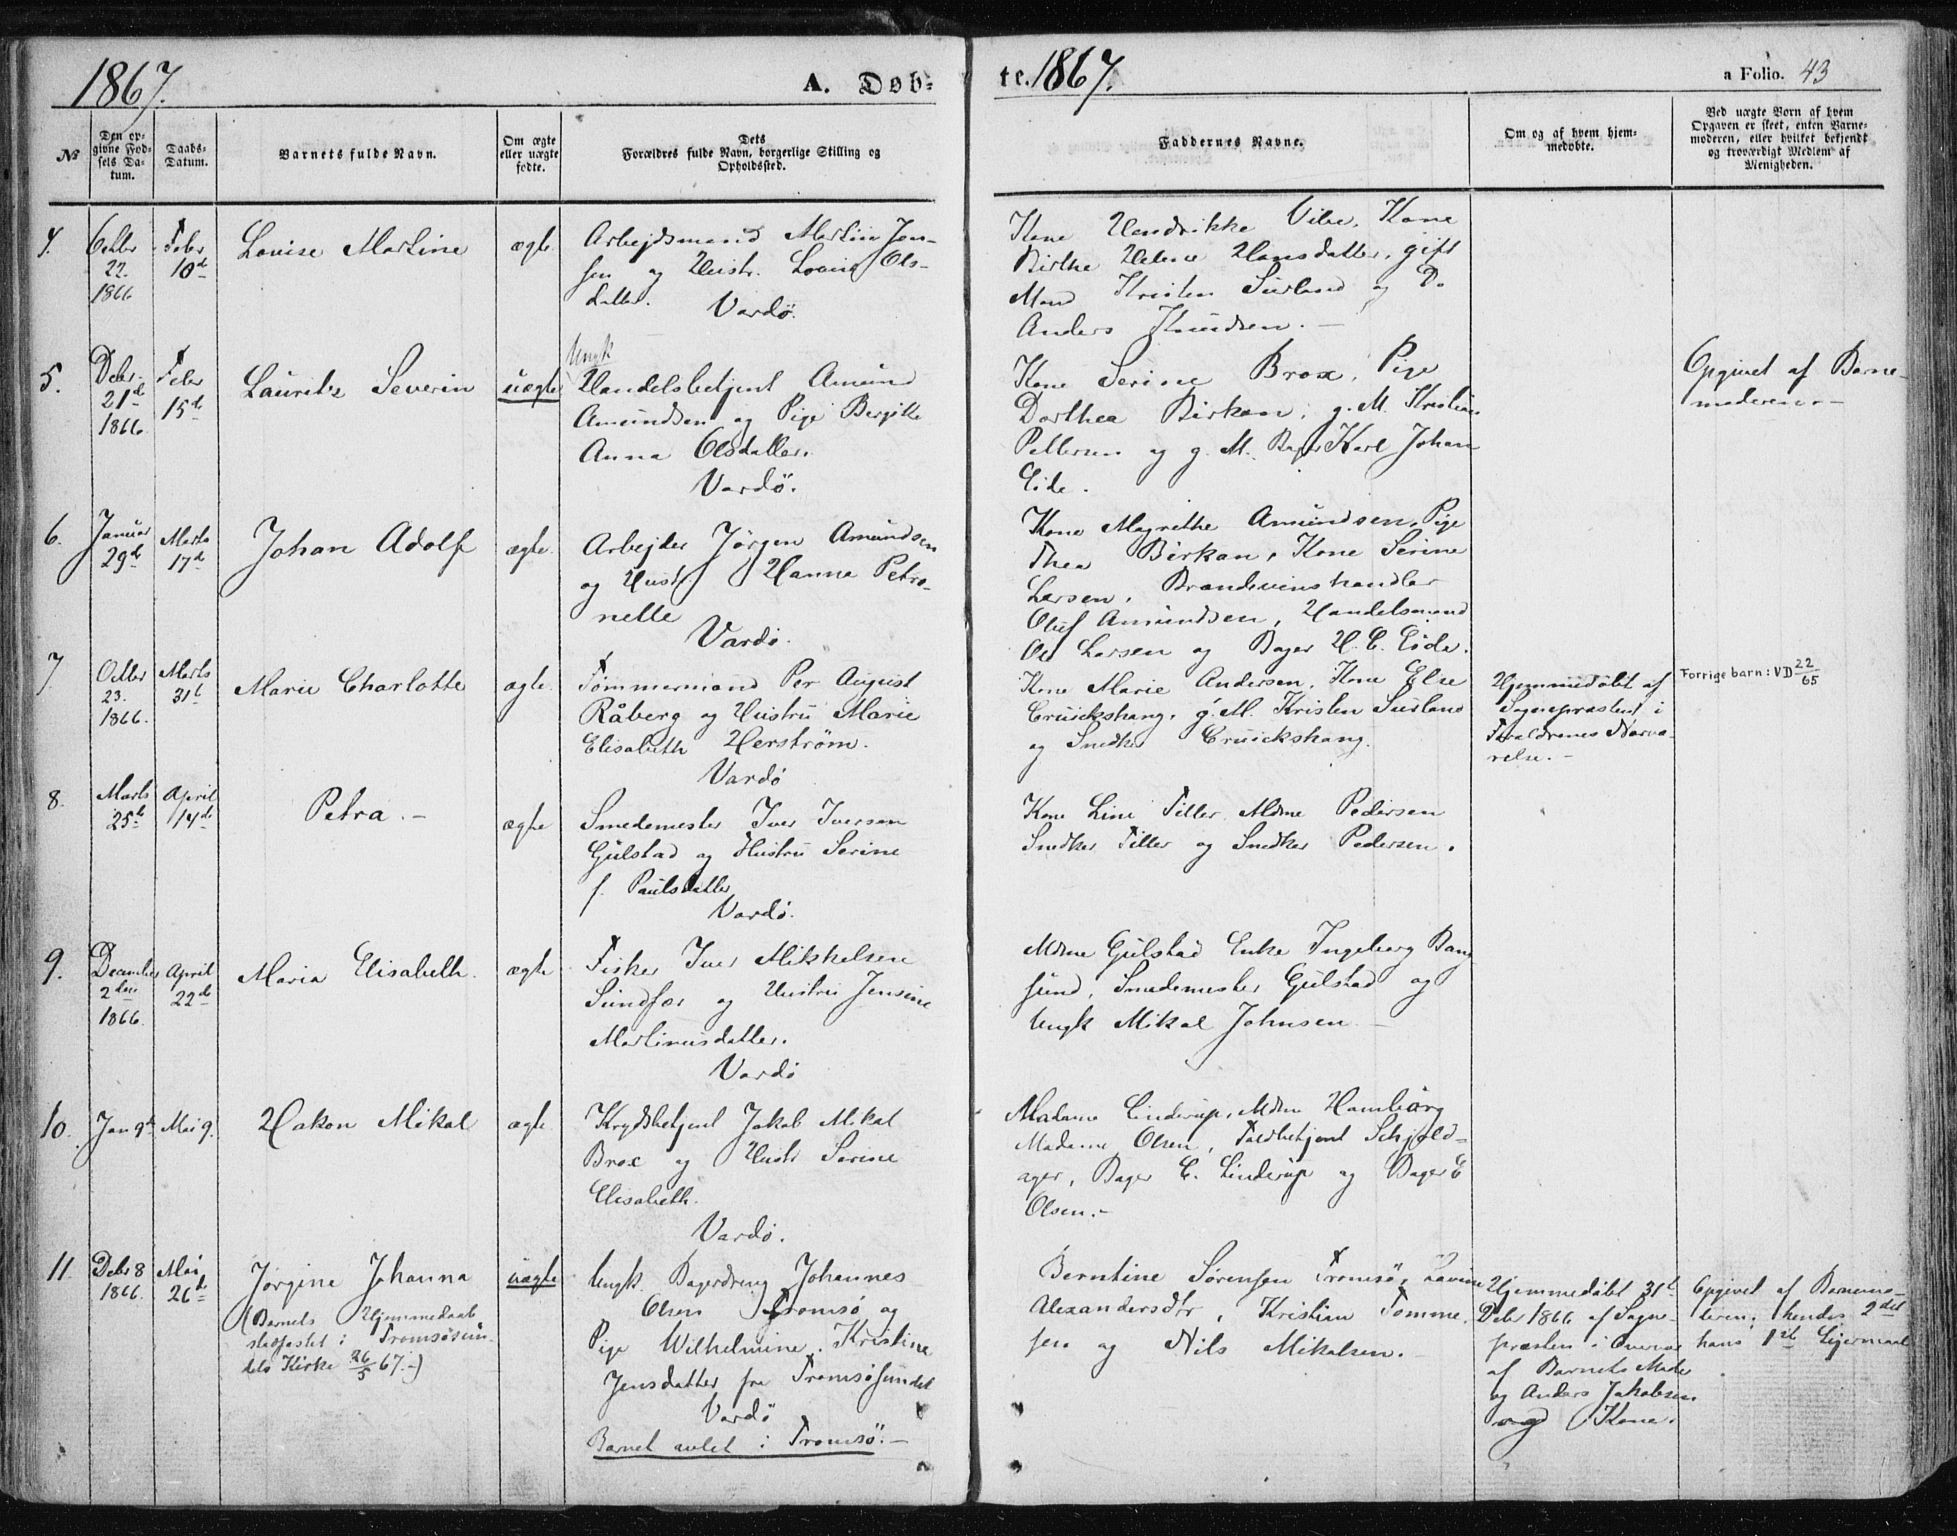 1867.
A. Døb-
te. 1867.
a Folio. 43
№
Den op-
givne Fød-
sels Da-
tum.
Daabs-
Datum.
Barnets fulde Navn.
Om ægte
eller uægte
fødte.
Dets
Forældres fulde Navn, borgerlige Stilling og
Opholdssted.
Faddernes Navne.
Om og af hvem hjem-
medøbte.
Ved uægte Børn af hvem
Opgaven er skeet, enten Barne-
moderen, eller hvilket bekjendt
og troværdigt Medlem af
Menigheden.
4.
Octbr
22.
1866
Febr
10d
Louise Martine
ægte
Arbejdsmand Martin Jen-
sen og Hustr. Lovise Ols-
datter.
Vardø.
Kone Hendrikke Vibe, Kone
Birthe Helene Hansdatter, gift
Mand Kristen Surland og Do
Anders Knudsen.
5.
Debr.
21d
1866.
Febr
15d
Lauritz Severin
uægte
Ungk
Handelsbetjent Amund
Amundsen og Pige Bergitte
Anna Olsdatter.
Vardø.
Kone Serine Brox, Pige
Dorthea Birkan, g. M. Kristian
Pettersen og g. M. Bager Karl Johan
Eide.
Opgivet af Barne-
moderen.-
6.
Januar
29d
Marts
17d
Johan Adolf
ægte.
Arbejder Jørgen Amundsen
og Hustr Hanna Petro-
nelle
Vardø.
Kone Magrethe Amundsen, Pige
Thea Birkan, Kone Serine
Larsen, Brændevinshandler
Oluf Amundsen, Handelsmand
Ole Larsen og Bager H. C. Eide.
7.
Octbr
23.
1866.
Marts
31t
Marie Charlotte
ægte.
Tømmermand Per August
Råberg og Hustru Marie
Elisabeth Herstrøm.
Vardø
Kone Marie Andersen, Kone Else
Cruickshang, g. M. Kristen Surland
og Snedker Cruickshang.
Hjemmedøbt af
Sognepræsten i
Forældrenes Nærvæ-
relse.-
Forrige barn: VD 22/65
8.
Marts
25d
April
14d
Petra.-
ægte
Smedemester Iver Iversen
Gulstad og Hustru Serine
f. Paulsdatter
Vardø.
Kone Line Tiller, Mdme Pedersen
Snedker Tiller og Snedker Pedersen.
9.
December
2den
1866.
April
22d
Maria Elisabeth.
ægte
Fisker Iver Mikkelsen
Sundfær og Hustru Jensine
Martinusdatter.
Vardø
Mdme Gulstad Enke Ingeborg Bang
sund, Smedemester Gulstad og
Ungk Mikal Johnsen
10.
Jan 9d
Mai 9.
Hakon Mikal
ægte
Krydsbetjent Jakob Mikal
Brox og Hustr Serine
Elisabeth.
Vardø.
Madame Linderup, Mdm Hamborg
Madame Olsen, Toldbetjent Schjeld-
ager, Bager C. Linderup og Bager E
Olsen.-
11
Debr 8
1866.
Mai
26d
Jørgine Johanna
(Barnets Hjemmedaab
stadfæstet i Tromsøsun-
dets Kirke 26/5 67.-)
uægte
Ungk. Bagerdreng Johannes
Olsen Tromsø og
Pige Wilhelmine Kristine
Jensdatter fra Tromsøsundet
Vardø
Barnet avlet i Tromsø.-
Berntine Sørensen Tromsø, Lavine
Alexandersdtr, Kristian Tomme-
sen og Nils Mikalsen.-
Hjemmedøbt 31t
Debr 1866 af Sogne-
præsten i Overvær
af Barnets Moder
og Anders Jakobsen
og Kone.
Opgivet af Barnemo-
deren; hendes 2det
hans 1st Lejermaal